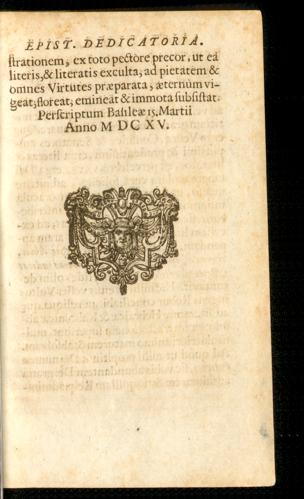 EPIST. DEDICATORIA.
ſtrationem, ex toto pectore precor, ut ea
literis, & literatis exculta, ad pietatem &
omnes Virtutes præparata, æternùm vi-
geat, floreat, emineat & immota ſubſiſtat.
Perſcriptum Baſileæ 15. Martii
Anno M DC XV.